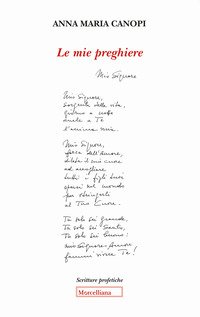 ANNA MARIA CANOPI
Le mie preghiere
Mio Signore
Mio Signore,
sorgente della vita,
giorno e notte
anela a Te
l'anima mia.
Mio Signore,
forza dell'Amore,
dilata il mio cuore
ad accogliere
tutti i figli tuoi
sparsi nel mondo
per stringerli
al Tuo Cuore.
Tu solo sei grande,
Tu solo sei Santo,
Tu solo sei buono:
mio Signore Amore,
fammi vivere Te!
Scritture profetiche
Morcelliana